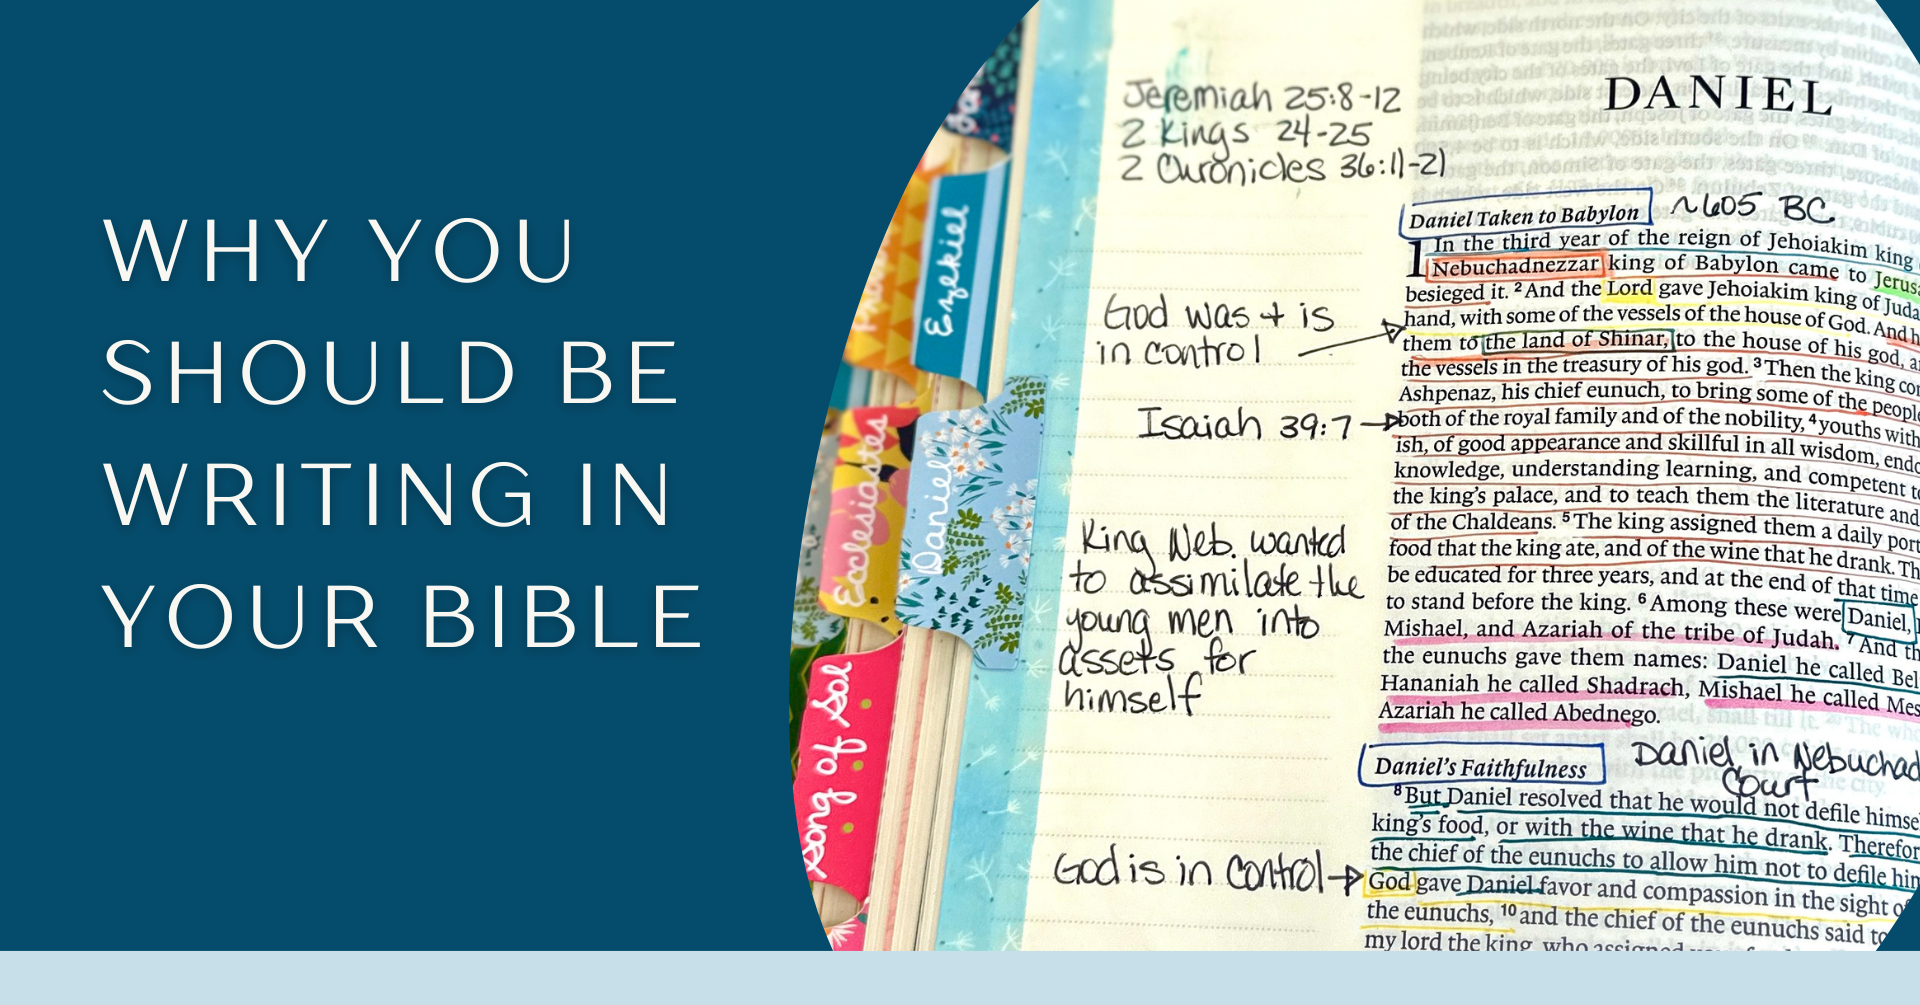 WHY YOU
SHOULD BE
WRITING IN
YOUR BIBLE
Ezekiel
Ecclesiastes
Daniel
Song of Sol
Jeremiah 25:8-12
2 Kings 24-25
2 Chronicles 36:11-21
God was + is
in control
Isaiah 39:7
King Neb. wanted
to assimilate the
young men into
assets for
himself
God is in control
DANIEL
Daniel Taken to Babylon
~605 BC
1 In the third year of the reign of Jehoiakim king
Nebuchadnezzar king of Babylon came to Jerusa
besieged it. 2 And the Lord gave Jehoiakim king of Juda
hand, with some of the vessels of the house of God. And h
them to the land of Shinar, to the house of his god, a
the vessels in the treasury of his god. 3 Then the king co
Ashpenaz, his chief eunuch, to bring some of the people
both of the royal family and of the nobility, 4 youths with
ish, of good appearance and skillful in all wisdom, endo
knowledge, understanding learning, and competent to
the king's palace, and to teach them the literature and
of the Chaldeans. 5 The king assigned them a daily port
food that the king ate, and of the wine that he drank. Th
be educated for three years, and at the end of that time
to stand before the king. 6 Among these were Daniel,
Mishael, and Azariah of the tribe of Judah. 7 And th
the eunuchs gave them names: Daniel he called Bel
Hananiah he called Shadrach, Mishael he called Mes
Azariah he called Abednego.
Daniel in Nebuchad
Court
Daniel's Faithfulness
8 But Daniel resolved that he would not defile himse
king's food, or with the wine that he drank. Therefor
the chief of the eunuchs to allow him not to defile him
God gave Daniel favor and compassion in the sight of
the eunuchs, 10 and the chief of the eunuchs said to
my lord the king, who assigned